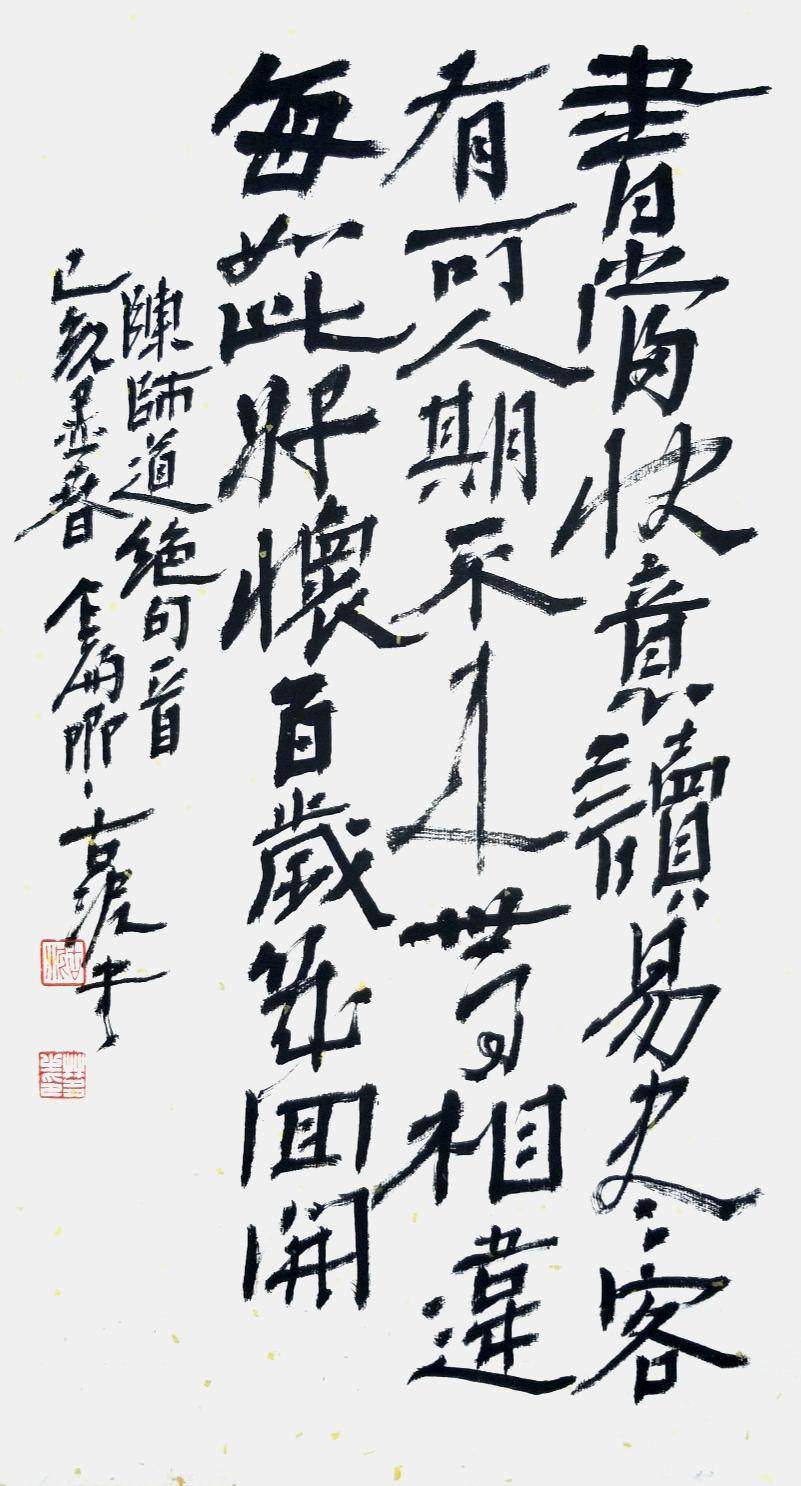 書當快意讀易尽客
有可人期不来世事相違
每如此好懷百歲幾回開
陳師道絕句一首
己亥孟春 古泥